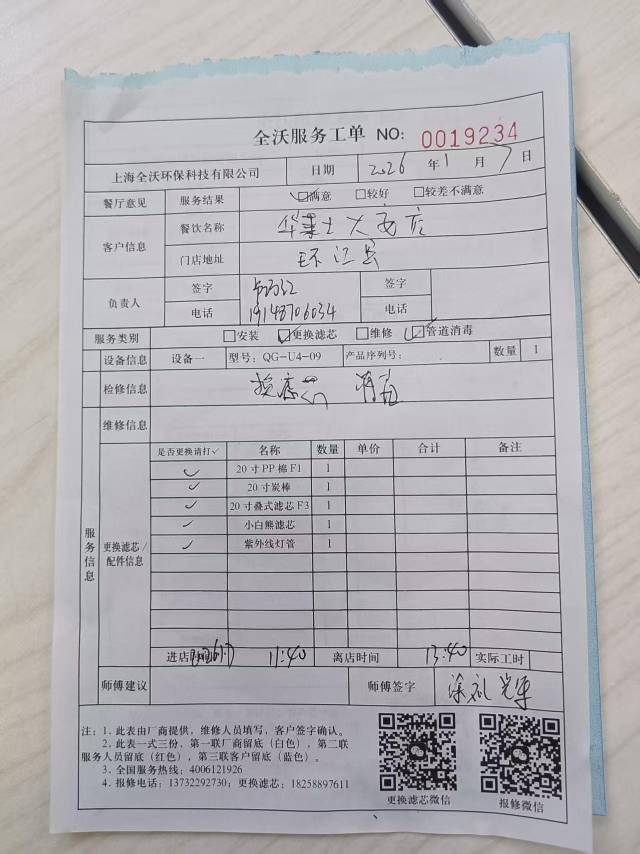 全沃服务工单 NO: 0019234
上海全沃环保科技有限公司 日期 2026 年 1 月 7 日
餐厅意见 服务结果 ☑满意 □较好 □较差不满意
客户信息 餐饮名称 华莱士大安店
门店地址 环江县
负责人 签字 签字
电话 19148706034 电话
服务类别 □安装 ☑更换滤芯 □维修 ☑管道消毒
设备信息 设备一 型号: QG-U4-09 产品序列号: 数量 1
检修信息 换滤芯 消毒
维修信息
服务信息
更换滤芯/配件信息
是否更换请打✓ 名称 数量 单价 合计 备注
✓ 20寸PP棉F1 1
✓ 20寸炭棒 1
✓ 20寸叠式滤芯F3 1
✓ 小白熊滤芯 1
✓ 紫外线灯管 1
进店时间 11:40 离店时间 13:40 实际工时
师傅建议 师傅签字
注: 1. 此表由厂商提供，维修人员填写，客户签字确认。
2. 此表一式三份，第一联厂商留底（白色），第二联
服务人员留底（红色），第三联客户留底（蓝色）。
3. 全国服务热线: 4006121926
4. 报修电话: 13732292730; 更换滤芯: 18258897611
更换滤芯微信 报修微信